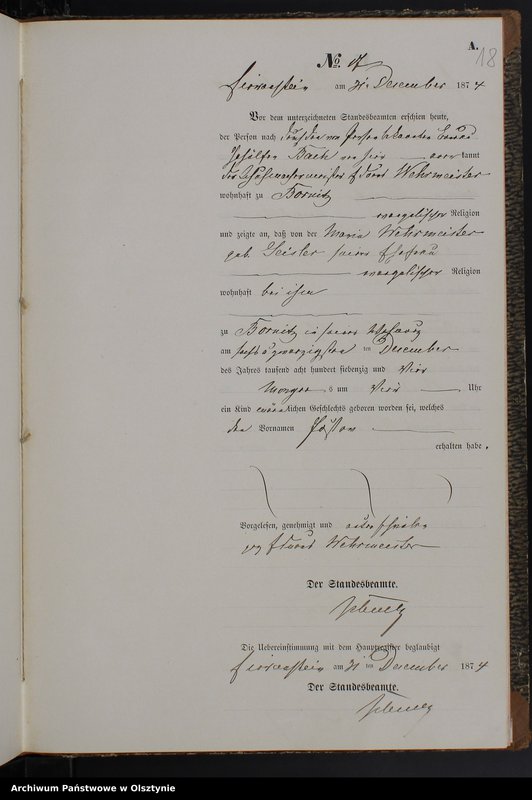 A.
18
No.
am 31 December 1874
Vor dem unterzeichneten Standesbeamten erschien heute,
der Person nach durch den von Person bekannten
Gehülfen Back von hier kannt
der Eduard Wehrmeister
wohnhaft zu Bornitz
evangelischer Religion
und zeigte an, daß von der Maria Wehrmeister
geb. Geisler seiner Ehefrau
evangelischer Religion
wohnhaft bei ihm
zu Bornitz in seiner Behausung
am sechs u zwanzigsten ten December
des Jahres tausend acht hundert siebenzig und Vier
Morgens um Vier Uhr
ein Kind männlichen Geschlechts geboren worden sei, welches
den Vornamen Gustav
erhalten habe.
Vorgelesen, genehmigt und unterschrieben
gez Eduard Wehrmeister
Der Standesbeamte.
Die Uebereinstimmung mit dem Hauptregister beglaubigt
am 31 ten December 1874
Der Standesbeamte.
Archiwum Państwowe w Olsztynie